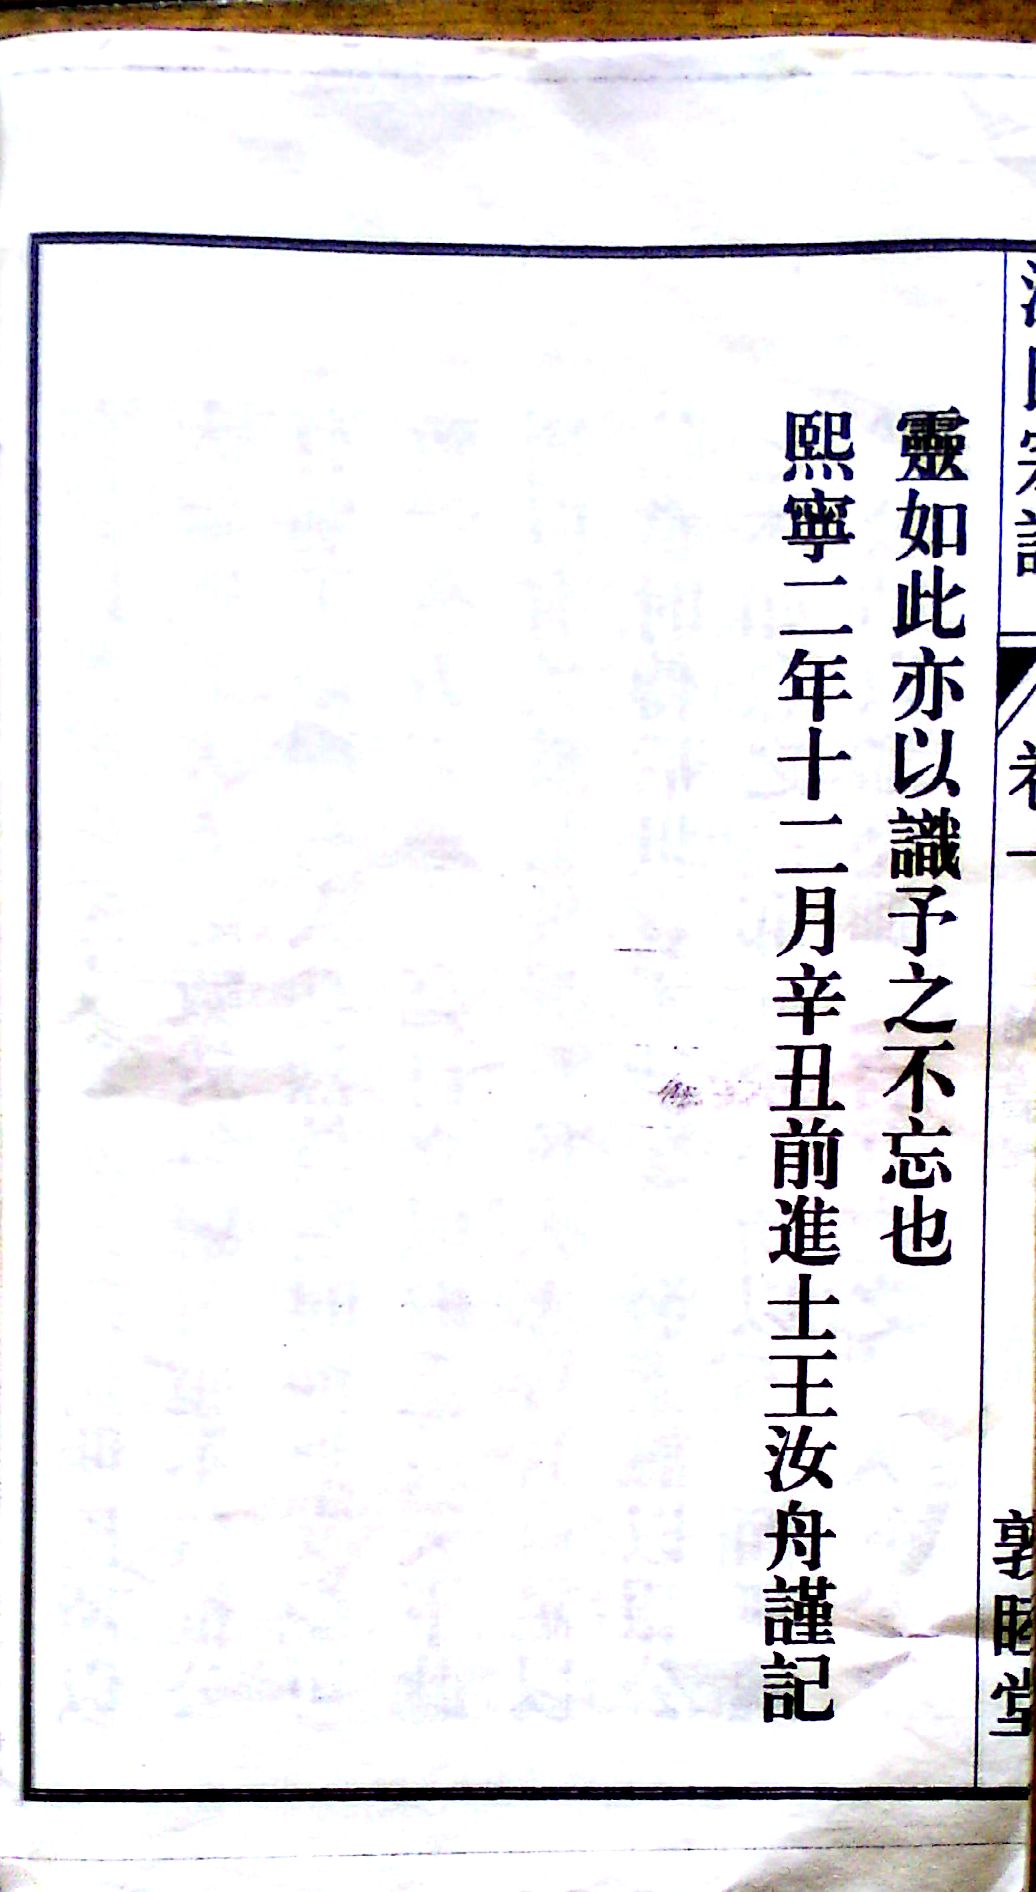 靈如此亦以識予之不忘也
熙寧二年十二月辛丑前進士王汝舟謹記
卷一
敦睦堂